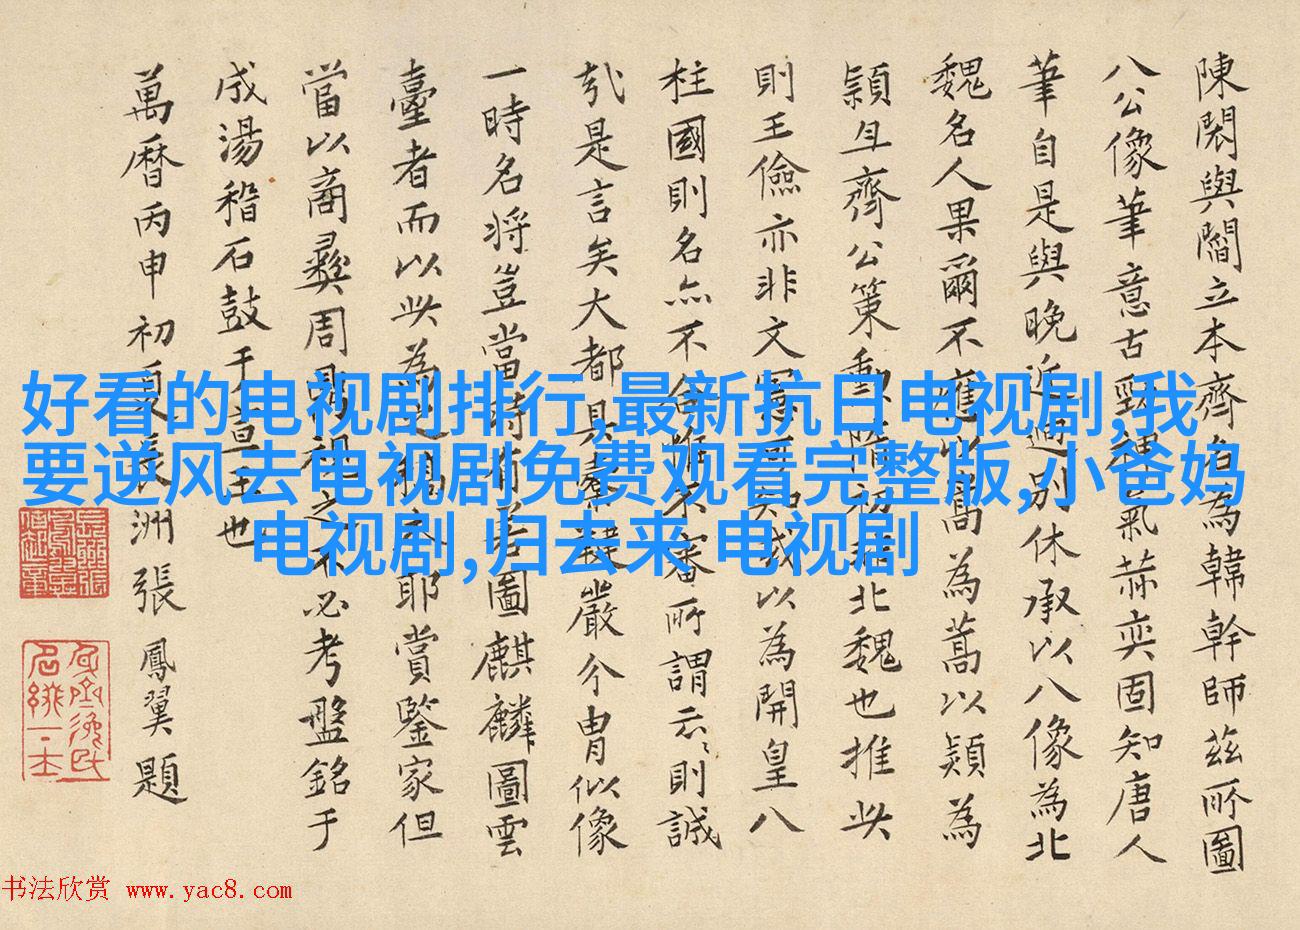 陳閎與閻立本齊名為韓幹師茲所圖
八公像筆意古勁神氣赫奕固知唐人
筆自是與晚近迥別休承以八像為北
魏名人果爾不應以高為蒿以熲為
穎且齊公策勳隋初非北魏也推此
則王儉亦非文
以為開皇八
柱國則名亦不合惟不審所謂云云則誠
哉是言矣大都具
嚴介冑似像
一時名将豈當時有善圖麒麟圖雲
臺者而以此為
耶賞鑒家但
當以商彝周鼎視之不必考盤銘于
成湯稽石鼓于宣王也
萬曆丙申初夏長洲張鳳翼題
好看的电视剧排行,最新抗日电视剧,我
要逆风去电视剧免费观看完整版,小爸妈
电视剧,归去来 电视剧
书法欣赏 www.yac8.com